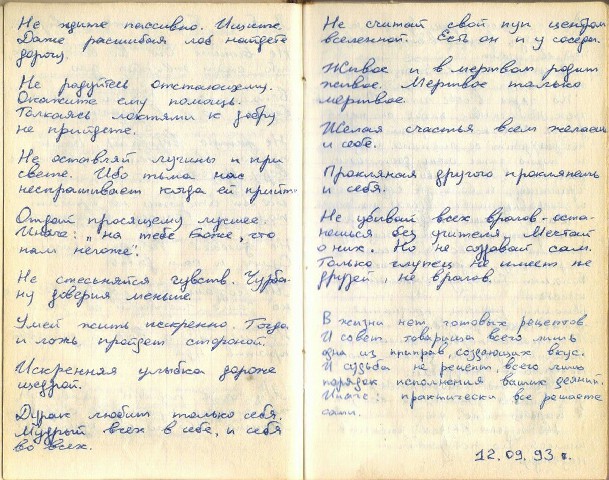 Не ждите пассивно. Ищите.
Даже расшибая лоб найдете
дорогу.
Не радуйтесь отстающему.
Окажите ему помощь.
Толкаясь локтями к добру
не придете.
Не оставляй лучины и при
свете. Ибо тьма нас
неспрашивает когда ей прийти.
Отдай просящему лучшее.
Иначе: „на тебе Боже, что
нам негоже".
Не стесняйся чувств. Чурба-
ну доверия меньше.
Умей жить искренно. Тогда
и ложь пройдет стороной.
Искренняя улыбка дороже
щедрой.
Дурак любит только себя.
Мудрый всех в себе, и себя
во всех.
Не считай свой пуп центром
вселенной. Есть он и у соседа.
Живое и в мертвом родит
живое. Мертвое только
мертвое.
Желая счастья всем желаешь
и себе.
Проклиная другого проклянешь
и себя.
Не убивай всех врагов - оста-
нешься без учителя. Мечтай
о них. Но не создавай сам.
Только глупец не имеет не
друзей, не врагов.
В жизни нет готовых рецептов.
И совет товарища всего лишь
одна из приправ, создающих вкус.
И судьба не рецепт, всего лишь
порядок исполнения ваших деяний.
Иначе: практически все решаете
сами.
12.09.93 г.